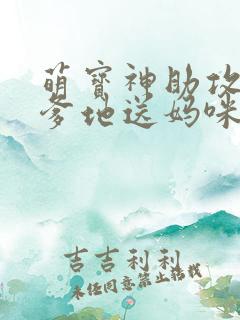 萌宝神助攻
爹地送妈咪
吉吉利利
未经同意禁止转载